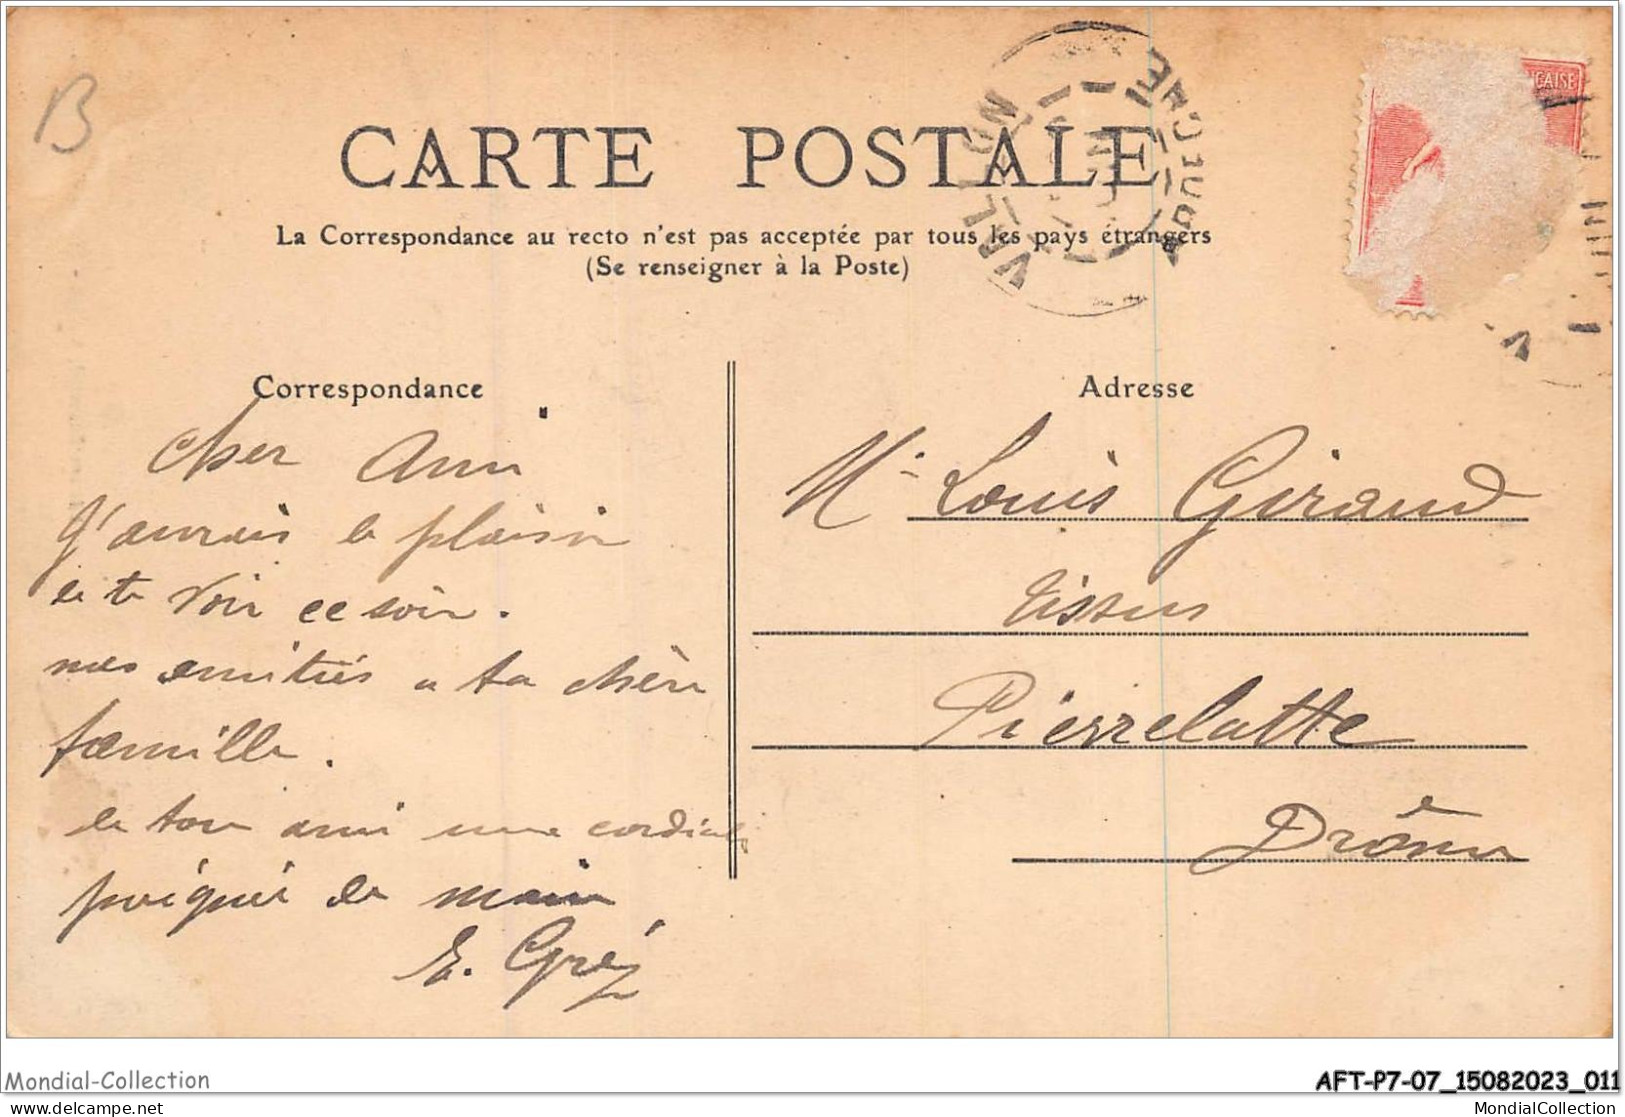 B
CARTE POSTALE
La Correspondance au recto n'est pas acceptée par tous les pays étrangers
(Se renseigner à la Poste)
VALLON
ARDECHE
CAISE
Correspondance
Cher Ami
J'aurais le plaisir
de te voir ce soir.
mes amitiés a ta chère
famille.
de ton ami une cordiale
poignée de main
E. Gréz
Adresse
Mr Louis Giraud
Tissus
Pierrelatte
Drôme
Mondial-Collection
AFT-P7-07_15082023_011
delcampe.net
MondialCollection